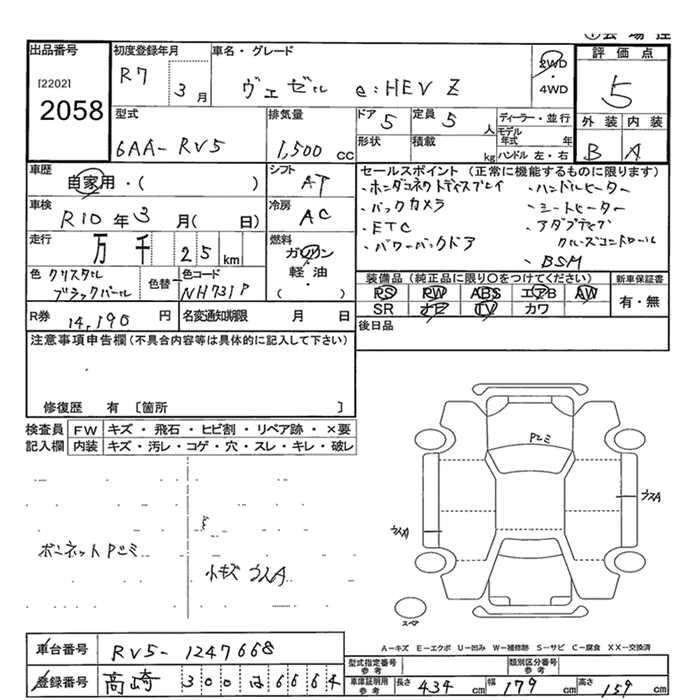 出品番号
[2202]
2058
初度登録年月
R7 3 月
車名・グレード
ヴェゼル e:HEV Z
2WD
・4WD
評価点
5
外装 内装
B A
型式
6AA-RV5
排気量
1,500 CC
ドア 5
定員 5 人
形状
積載 kg
ディーラー・並行
モデル年式 年
ハンドル 左・右
車歴
自家用・( )
シフト
AT
車検
R10 年 3 月( 日)
冷房
AC
走行
万 千 25 km
燃料
ガソリン
軽油
・( )
色 クリスタル
ブラックパール
色替
色コード
NH731P
R券 14,190 円
名変通知期限 月 日
セールスポイント (正常に機能するものに限ります)
・ホンダコネクトディスプレイ
・バックカメラ
・ETC
・パワーバックドア
・ハンドルヒーター
・シートヒーター
・アダプティブ
クルーズコントロール
・BSM
装備品 (純正品に限り○をつけてください)
PS PW ABS エアB AW
SR ナビ TV カワ
新車保証書
有・無
後日品
注意事項申告欄 (不具合内容等は具体的に記入して下さい)
修復歴 有 [箇所 ]
検査員 FW キズ・飛石・ヒビ割・リペア跡・×要
記入欄 内装 キズ・汚レ・コゲ・穴・スレ・キレ・破レ
ボンネットPニミ
小キズ ウスA
Pニミ
ウスA
ウスA
スペア
A-キズ E-エクボ U-凹み W-補修跡 S-サビ C-腐食 XX-交換済
車台番号 RV5-1247668
登録番号 高崎 300 は 6664
型式指定番号
参考
類別区分番号
参考
車庫証明用
参考
長さ 434 cm 幅 179 cm 高さ 159 cm